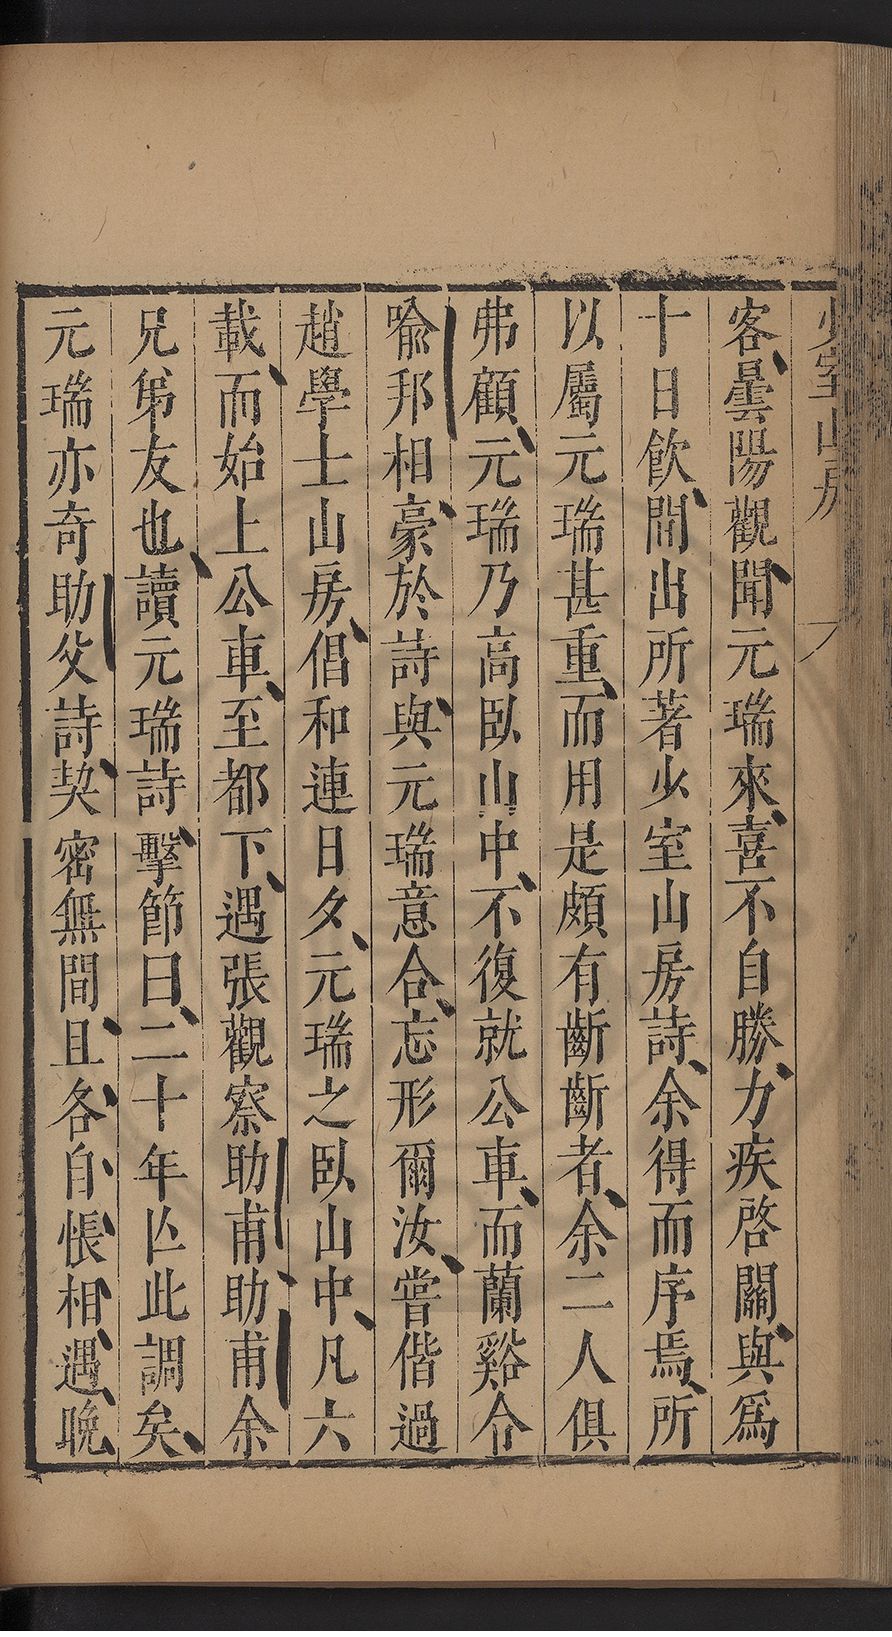 少室山房
客曇陽觀聞元瑞來喜不自勝力疾啓關與爲
十日飲間出所著少室山房詩余得而序焉所
以屬元瑞甚重而用是頗有齗齗者余二人俱
弗顧元瑞乃高臥山中不復就公車而蘭谿令
喩邦相豪於詩與元瑞意合忘形爾汝嘗偕過
趙學士山房倡和連日夕元瑞之臥山中凡六
載而始上公車至都下遇張觀察助甫助甫余
兄弟友也讀元瑞詩擊節曰二十年亾此調矣
元瑞亦奇助父詩契密無間且各自悵相遇晚